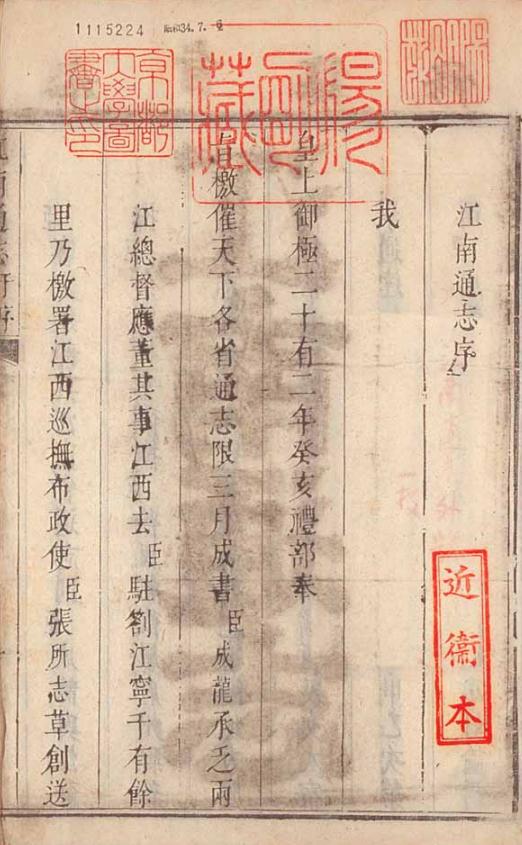 1115224 昭和34.7.
京都
大學圖
書之印
陽明藏
近衞本
江南通志序
我
皇上御極二十有二年癸亥禮部奉
旨檄催天下各省通志限三月成書臣成龍承乏兩
江總督應董其事江西去臣駐劄江寧千有餘
里乃檄署江西巡撫布政使臣張所志草創送
江南通志 于序